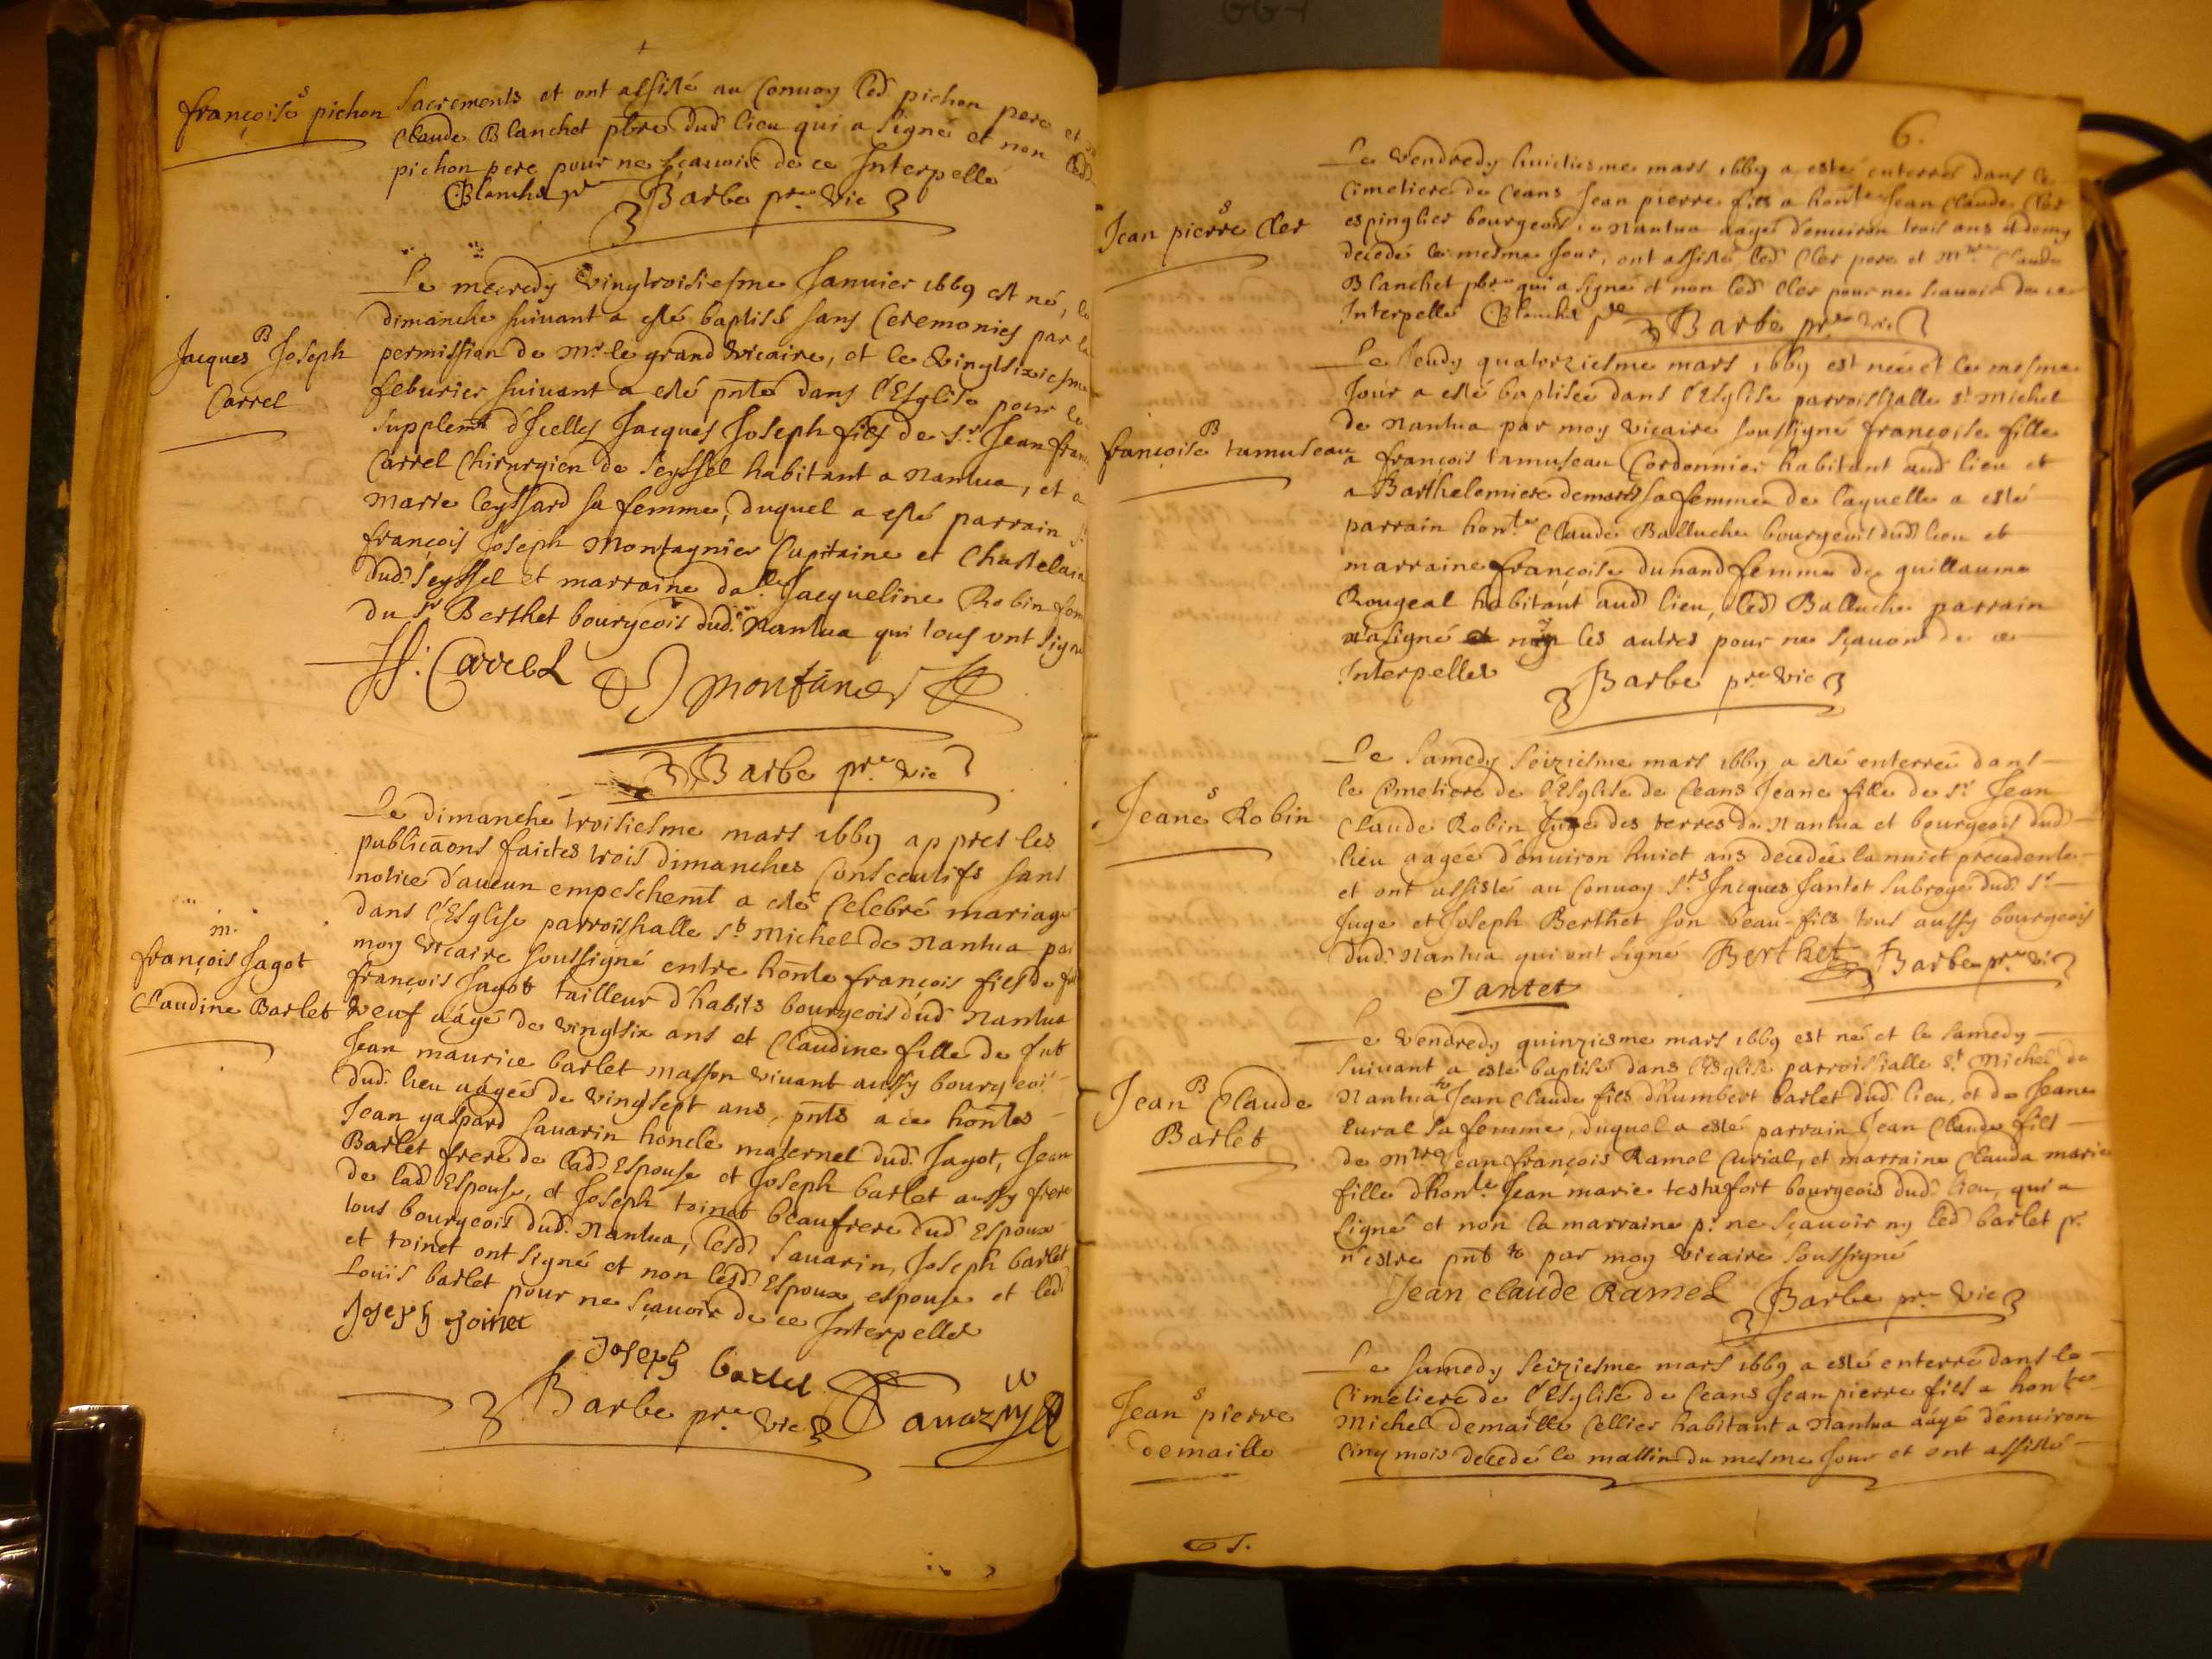 GG 1
S
françoise pichon
Sacrements et ont assisté au Convoy led pichon pere et
Claude Blanchet pbre dud lieu qui a signé et non led
pichon pere pour ne sçavoir de ce Interpellé
CBlanchet pre Barbe pre vic
B
Jacques Joseph
Carrel
Le mecredy vingtroisiesme Janvier 1669 est né, le
dimanche suivant a esté baptisé sans Ceremonies par la
permission de Mr le grand vicaire, et le vingtsixiesme
feburier suivant a esté pnté dans l'Esglise pour le
supplemt d'Icelles Jacques Joseph fils de Sr Jean fran
Carrel Chirurgien de Seyssel habitant a Nantua, et a
Marie Leyssard sa femme, duquel a esté parrain Sr
françois Joseph Montagnier Capitaine et Chastelain
dud. Seyssel et marraine dalle Jacqueline Robin fem
du Sr Berthet bourgeois dud. Nantua qui tous ont signé
JF. Carrel Montanier
Barbe pre vic
m.
françois Jagot
Claudine Barlet
Le dimanche troisiesme mars 1669 appres les
publicaons faictes trois dimanches Consecutifs sans
notice d'aucun empeschemt a esté Celebré mariage
dans l'Esglise parroissialle St Michel de Nantua par
moy vicaire soussigné entre honte françois fils de fut
françois Jagot tailleur d'habits bourgeois dud Nantua
veuf aagé de vingtsix ans et Claudine fille de fut
Jean maurice barlet masson vivant aussy bourgeois
dud. lieu aagée de vingtsept ans, pnts a ce hontes
Jean gaspard Savarin honcle maternel dud. Jagot, Jean
Barlet frere de lad. Espouse et Joseph barlet aussy frere
de lad Espouse, et Joseph toinet beaufrere dud Espoux
tous bourgeois dud. Nantua, lesd Savarin, Joseph barlet
et toinet ont signé et non lesd. Espoux espouse et led
Louis barlet pour ne sçavoir de ce Interpellés
Joseph toinet
Joseph barlet
Barbe pre vic Savarin
6.
S
Jean pierre Cler
Le vendredy huictiesme mars 1669 a esté enterré dans le
Cimetiere de Ceans Jean pierre fils a honte Jean Claude Cler
espinglier bourgeois a Nantua aagé d'environ trois ans et demy
decedé le mesme Jour, ont assisté led Cler pere et Mre Claude
Blanchet pbre qui a signé et non led Cler pour ne sçavoir de ce
Interpellé CBlanchet pre Barbe pre vic
B
françoise tamuseau
Le Jeudy quatorziesme mars 1669 est née et le mesme
Jour a esté baptisée dans l'Esglise parroissialle St Michel
de Nantua par moy vicaire soussigné françoise fille
a françois tamuseau Cordonnier habitant aud lieu et
a Barthelemiere demors sa femme de laquelle a esté
parrain honte Claude Balluche bourgeois dud lieu et
marraine françoise dunand femme de guillaume
Rougeal habitant aud lieu, led Balluche parrain
n'a signé ny les autres pour ne sçavoir de ce
Interpellés Barbe pre vic
S
Jeane Robin
Le Samedy Seiziesme mars 1669 a esté enterrée dans
le Cimetiere de l'Esglise de Ceans Jeane fille de Sr Jean
Claude Robin Juge des terres de Nantua et bourgeois dud
lieu aagée d'environ huict ans decedée la nuict precedente
et ont assisté au Convoy Srs Jacques Jantet subrogé dud. Sr
Juge et Joseph Berthet son beau-fils tous aussy bourgeois
dud. Nantua qui ont signé Berthet Barbe pre vic
Jantet
B
Jean Claude
Barlet
Le vendredy quinziesme mars 1669 est né et le samedy
suivant a esté baptisé dans l'Esglise parroissialle St Michel de
Nantua Jean Claude fils d'Humbert barlet dud. lieu, et de Jeane
Eural sa femme, duquel a esté parrain Jean Claude fils
de Mtre Jean françois Ramel Curial, et marraine Clauda marie
fille d'honte Jean marie testufort bourgeois dud. lieu, qui a
signé et non la marraine p. ne sçavoir ny led barlet pr
n'estre pnt par moy vicaire soussigné
Jean Claude Ramel Barbe pre vic
S
Jean pierre
demaille
Le samedy Seiziesme mars 1669 a esté enterré dans le
Cimetiere de l'Esglise de Ceans Jean pierre fils a honte
Michel demaille Cellier habitant a Nantua aagé d'environ
Cinq mois decedé le mattin du mesme Jour et ont assisté